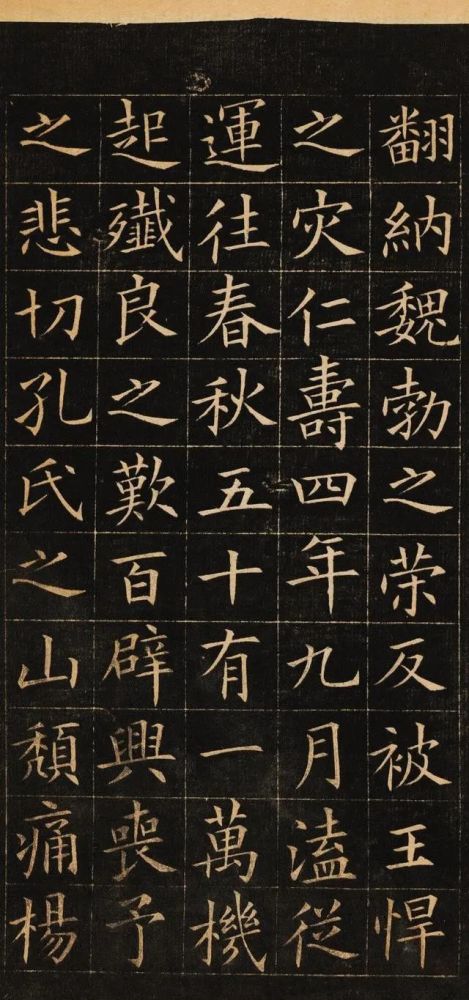 翻納魏勃之荣反被王悍
之灾仁壽四年九月溘従
運往春秋五十有一萬機
起殲良之歎百辟興喪予
之悲切孔氏之山頹痛楊